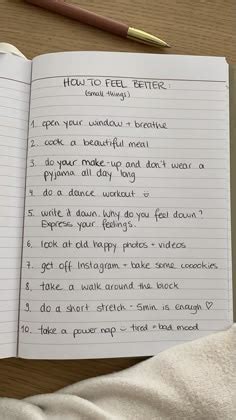 HOW TO FEEL BETTER:
(small things)
1. open your window + breathe
2. cook a beautiful meal
3. do your make-up and don't wear a
pyjama all day long
4. do a dance workout ☺
5. write it down. Why do you feel down?
Express your feelings.
6. look at old happy photos + videos
7. get off Instagram + bake some cooookies
8. take a walk around the block
9. do a short stretch - 5min is enough ♡
10. take a power nap - tired = bad mood